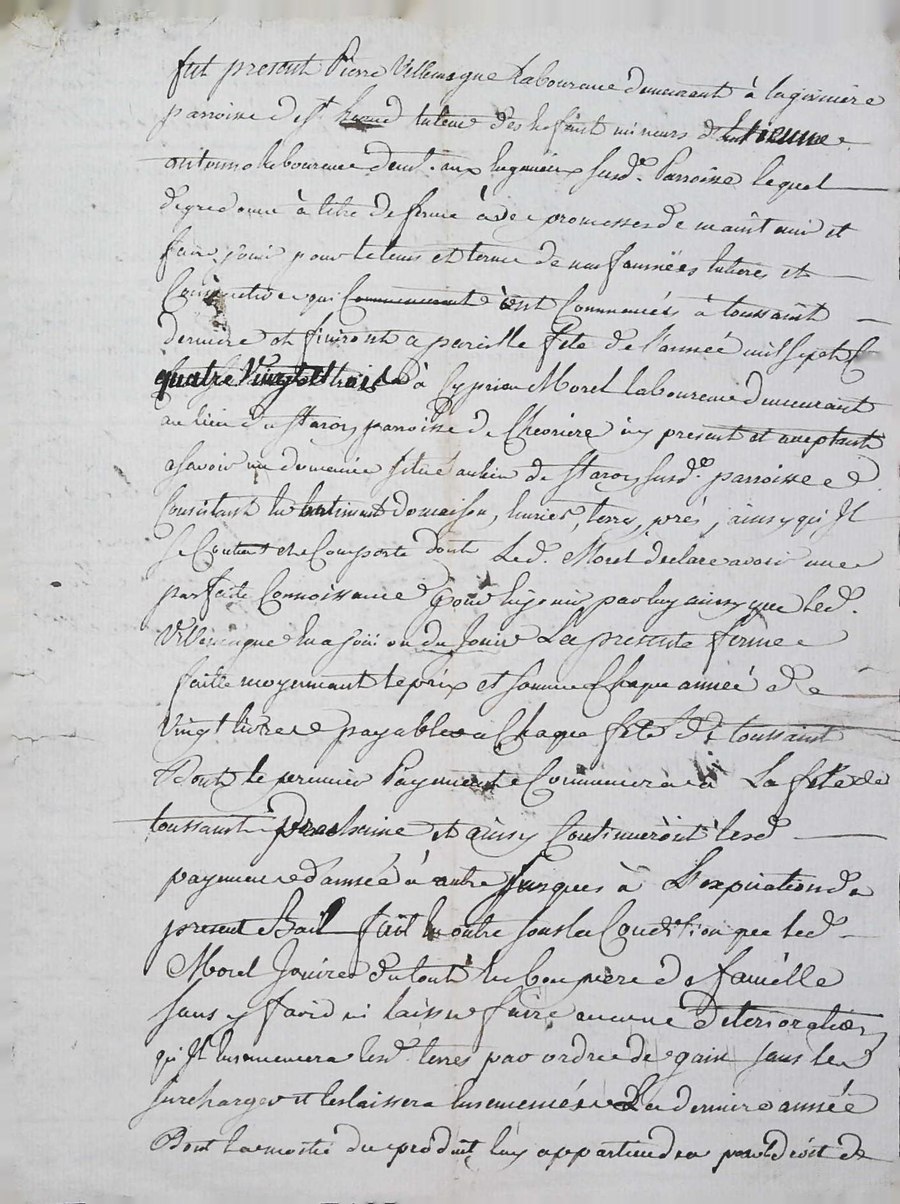 fut present Pierre Villemagne laboureur demeurant à lagriniere
parroisse de St tuteur des enfants mineurs d'Etienne
antoine laboureur demt. aux susd. Parroisse lequel
de gré donne à titre de ferme avec promesses de maintenir et
faire jouir pour le tems et terme de neuf années entieres et
Consecutives qui Commenceront à ont Commencés à toussaint
derniere et finiront a pareille fête de l'année mil sept C
quatre Vingt trois à Cyprien Morel laboureur demeurant
au lieu du parroisse de Cheoriere icy present et acceptant
asavoir un domaine situé au lieu de susd. parroisse
Consistant en batiment de maison, terres, prés, ainsy qu'Il
se Contient et se Comporte dont Led. Morel declare avoir une
parfaitte Connoissance pour en jouir par luy ainsy que led.
Villemagne en a joui ou du Jouir La presente ferme
faitte moyennant le prix et somme Chaque année de
Vingt livres payables a Chaque fête de toussaint
Dont le premier Payement Commencera à La fête de
toussaint prochaine et ainsy Continueront lesd.
payement d'année à autre Jusques à L'expiration du
present Bail fait en outre sous la Condition que led.
Morel Jouira du tout en bon pere de famille
sans y faire ni laisser faire aucune deterioration,
qu'Il ensemencera lesd. terres par ordre de gain sans les
surcharger et les laissera ensemencées La derniere année
Dont la moitié du produit luy appartiendra pour droit de